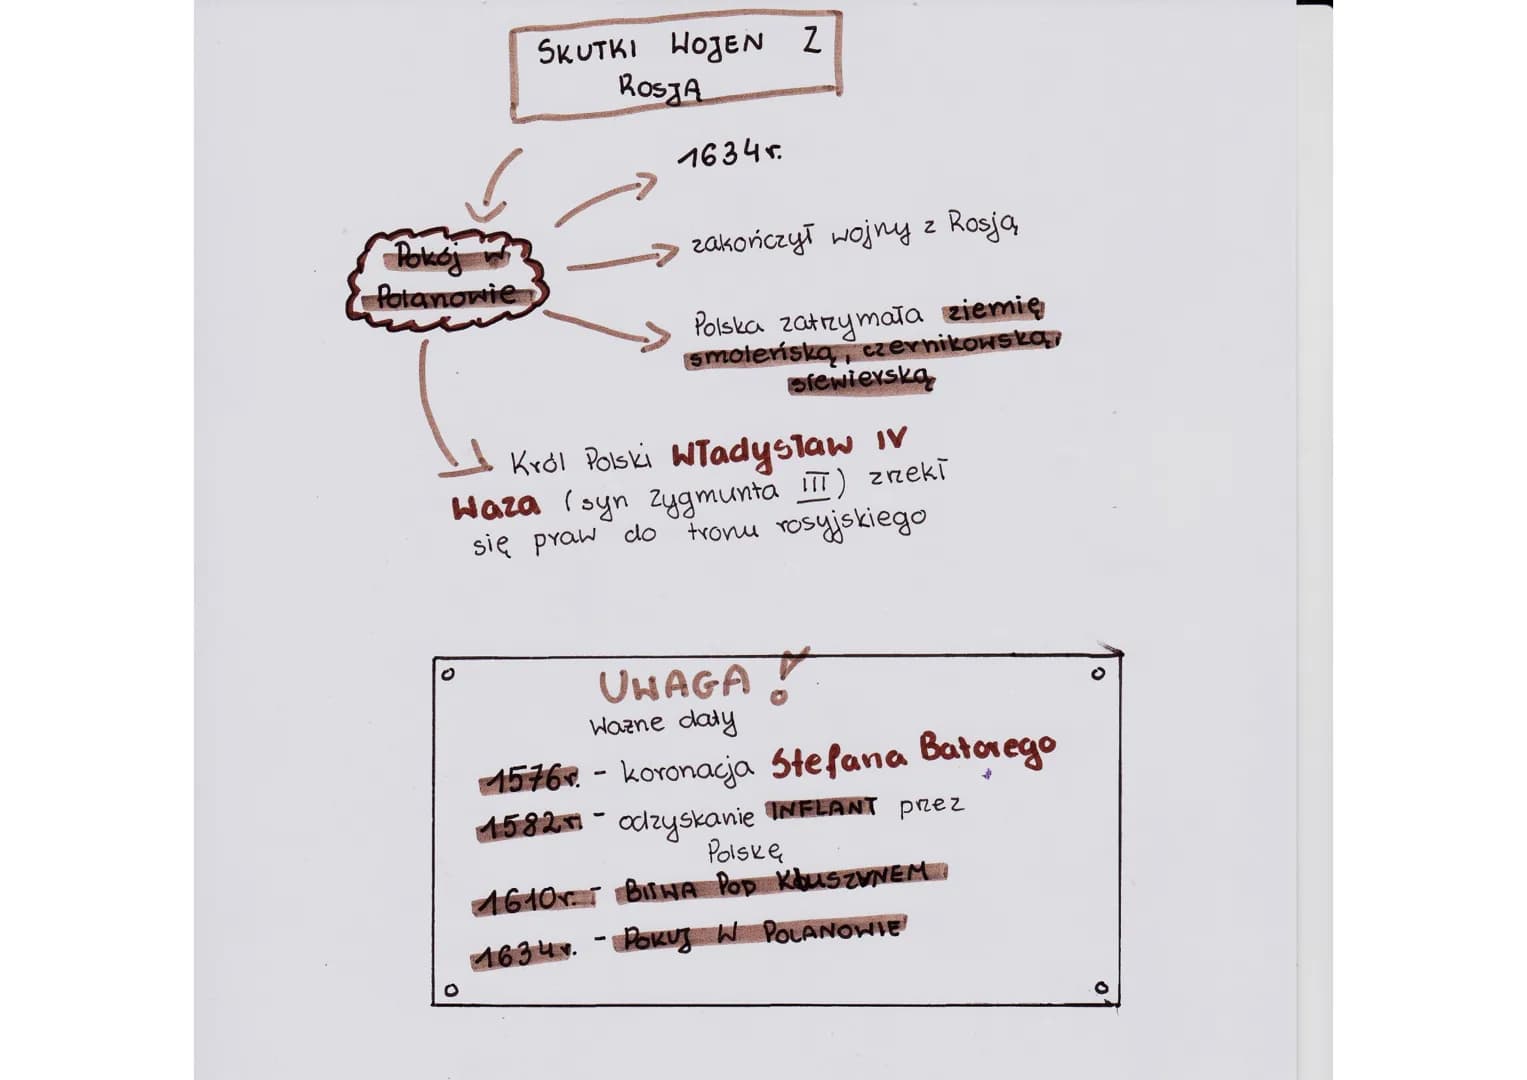 SKUTKI WOJEN Z
ROSJĄ
1634r.
Pokój w
Polanowie
zakończył wojny z Rosją
Polska zatrzymała ziemię
smoleńską, czernikowską,
siewierską
Król Polski Władysław IV
Waza (syn Zygmunta III) zrzekł
się praw do tronu rosyjskiego
UWAGA!
Ważne daty
1576r. - koronacja Stefana Batorego
1582r - odzyskanie INFLANT przez
Polskę
1610r. - BITWA POD KŁUSZYNEM
1634r. - POKUJ W POLANOWIE